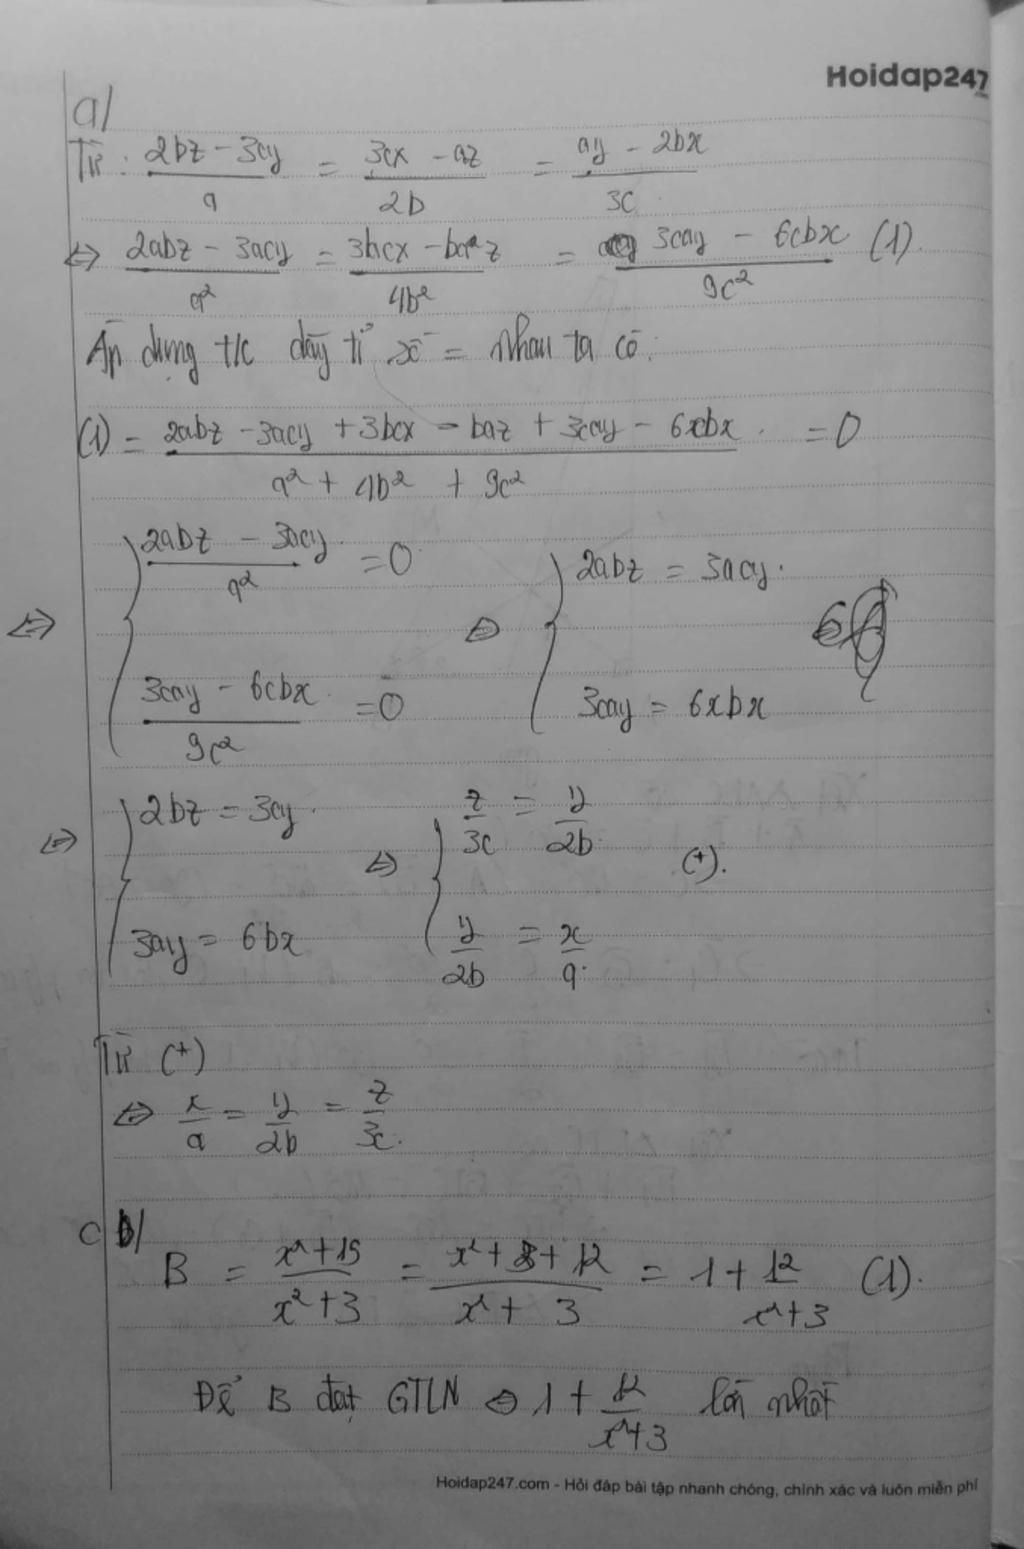 Hoidap247
.com
a/
Từ: (2bz - 3cy)/a = (3cx - az)/2b = (ay - 2bx)/3c
⇔ (2abz - 3acy)/a² = (3bcx - baz)/4b² = (3cay - 6cbx)/9c² (1).
Áp dụng t/c dãy tỉ số = nhau ta có:
(1) = (2abz - 3acy + 3bcx - baz + 3cay - 6xbx)/(a² + 4b² + 9c²) = 0
⇔ { (2abz - 3acy)/a² = 0 ⇔ { 2abz = 3acy.
(3cay - 6cbx)/9c² = 0 3cay = 6xbx
⇔ { 2bz = 3cy. ⇔ { z/3c = y/2b (+).
3ay = 6bx y/2b = x/a.
Từ (+)
⇔ x/a = y/2b = z/3c.
c b/
B = (x² + 15)/(x² + 3) = (x² + 3 + 12)/(x² + 3) = 1 + 12/(x² + 3) (1).
Để B đạt GTLN ⇔ 1 + 12/(x² + 3) lớn nhất
Hoidap247.com - Hỏi đáp bài tập nhanh chóng, chính xác và luôn miễn phí